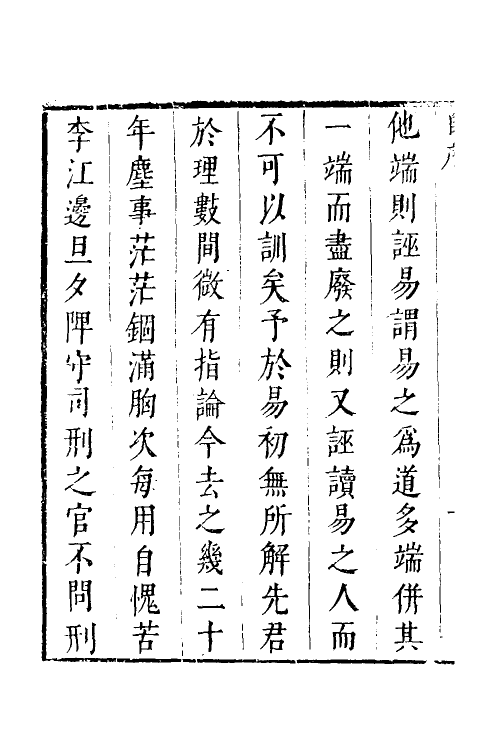 他端則誣易謂易之爲道多端併其
一端而盡廢之則又誣讀易之人而
不可以訓矣予於易初無所解先君
於理數間微有指論今去之幾二十
年塵事茫茫錮滿胸次每用自愧苦
李江邊旦夕陴守司刑之官不問刑